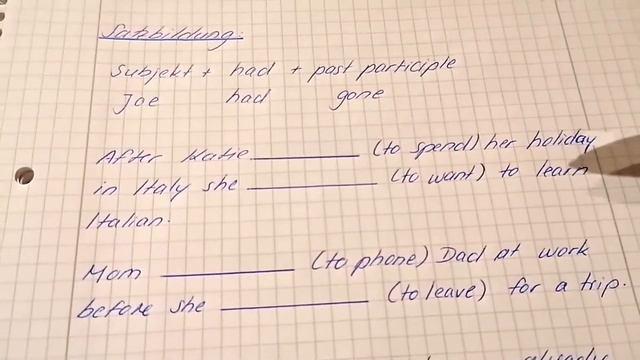 Satzbildung:
Subjekt + had + past participle
Joe had gone
After Katie ________ (to spend) her holiday
in Italy she ________ (to want) to learn
Italian.
Mom ________ (to phone) Dad at work
before she ________ (to leave) for a trip.
already